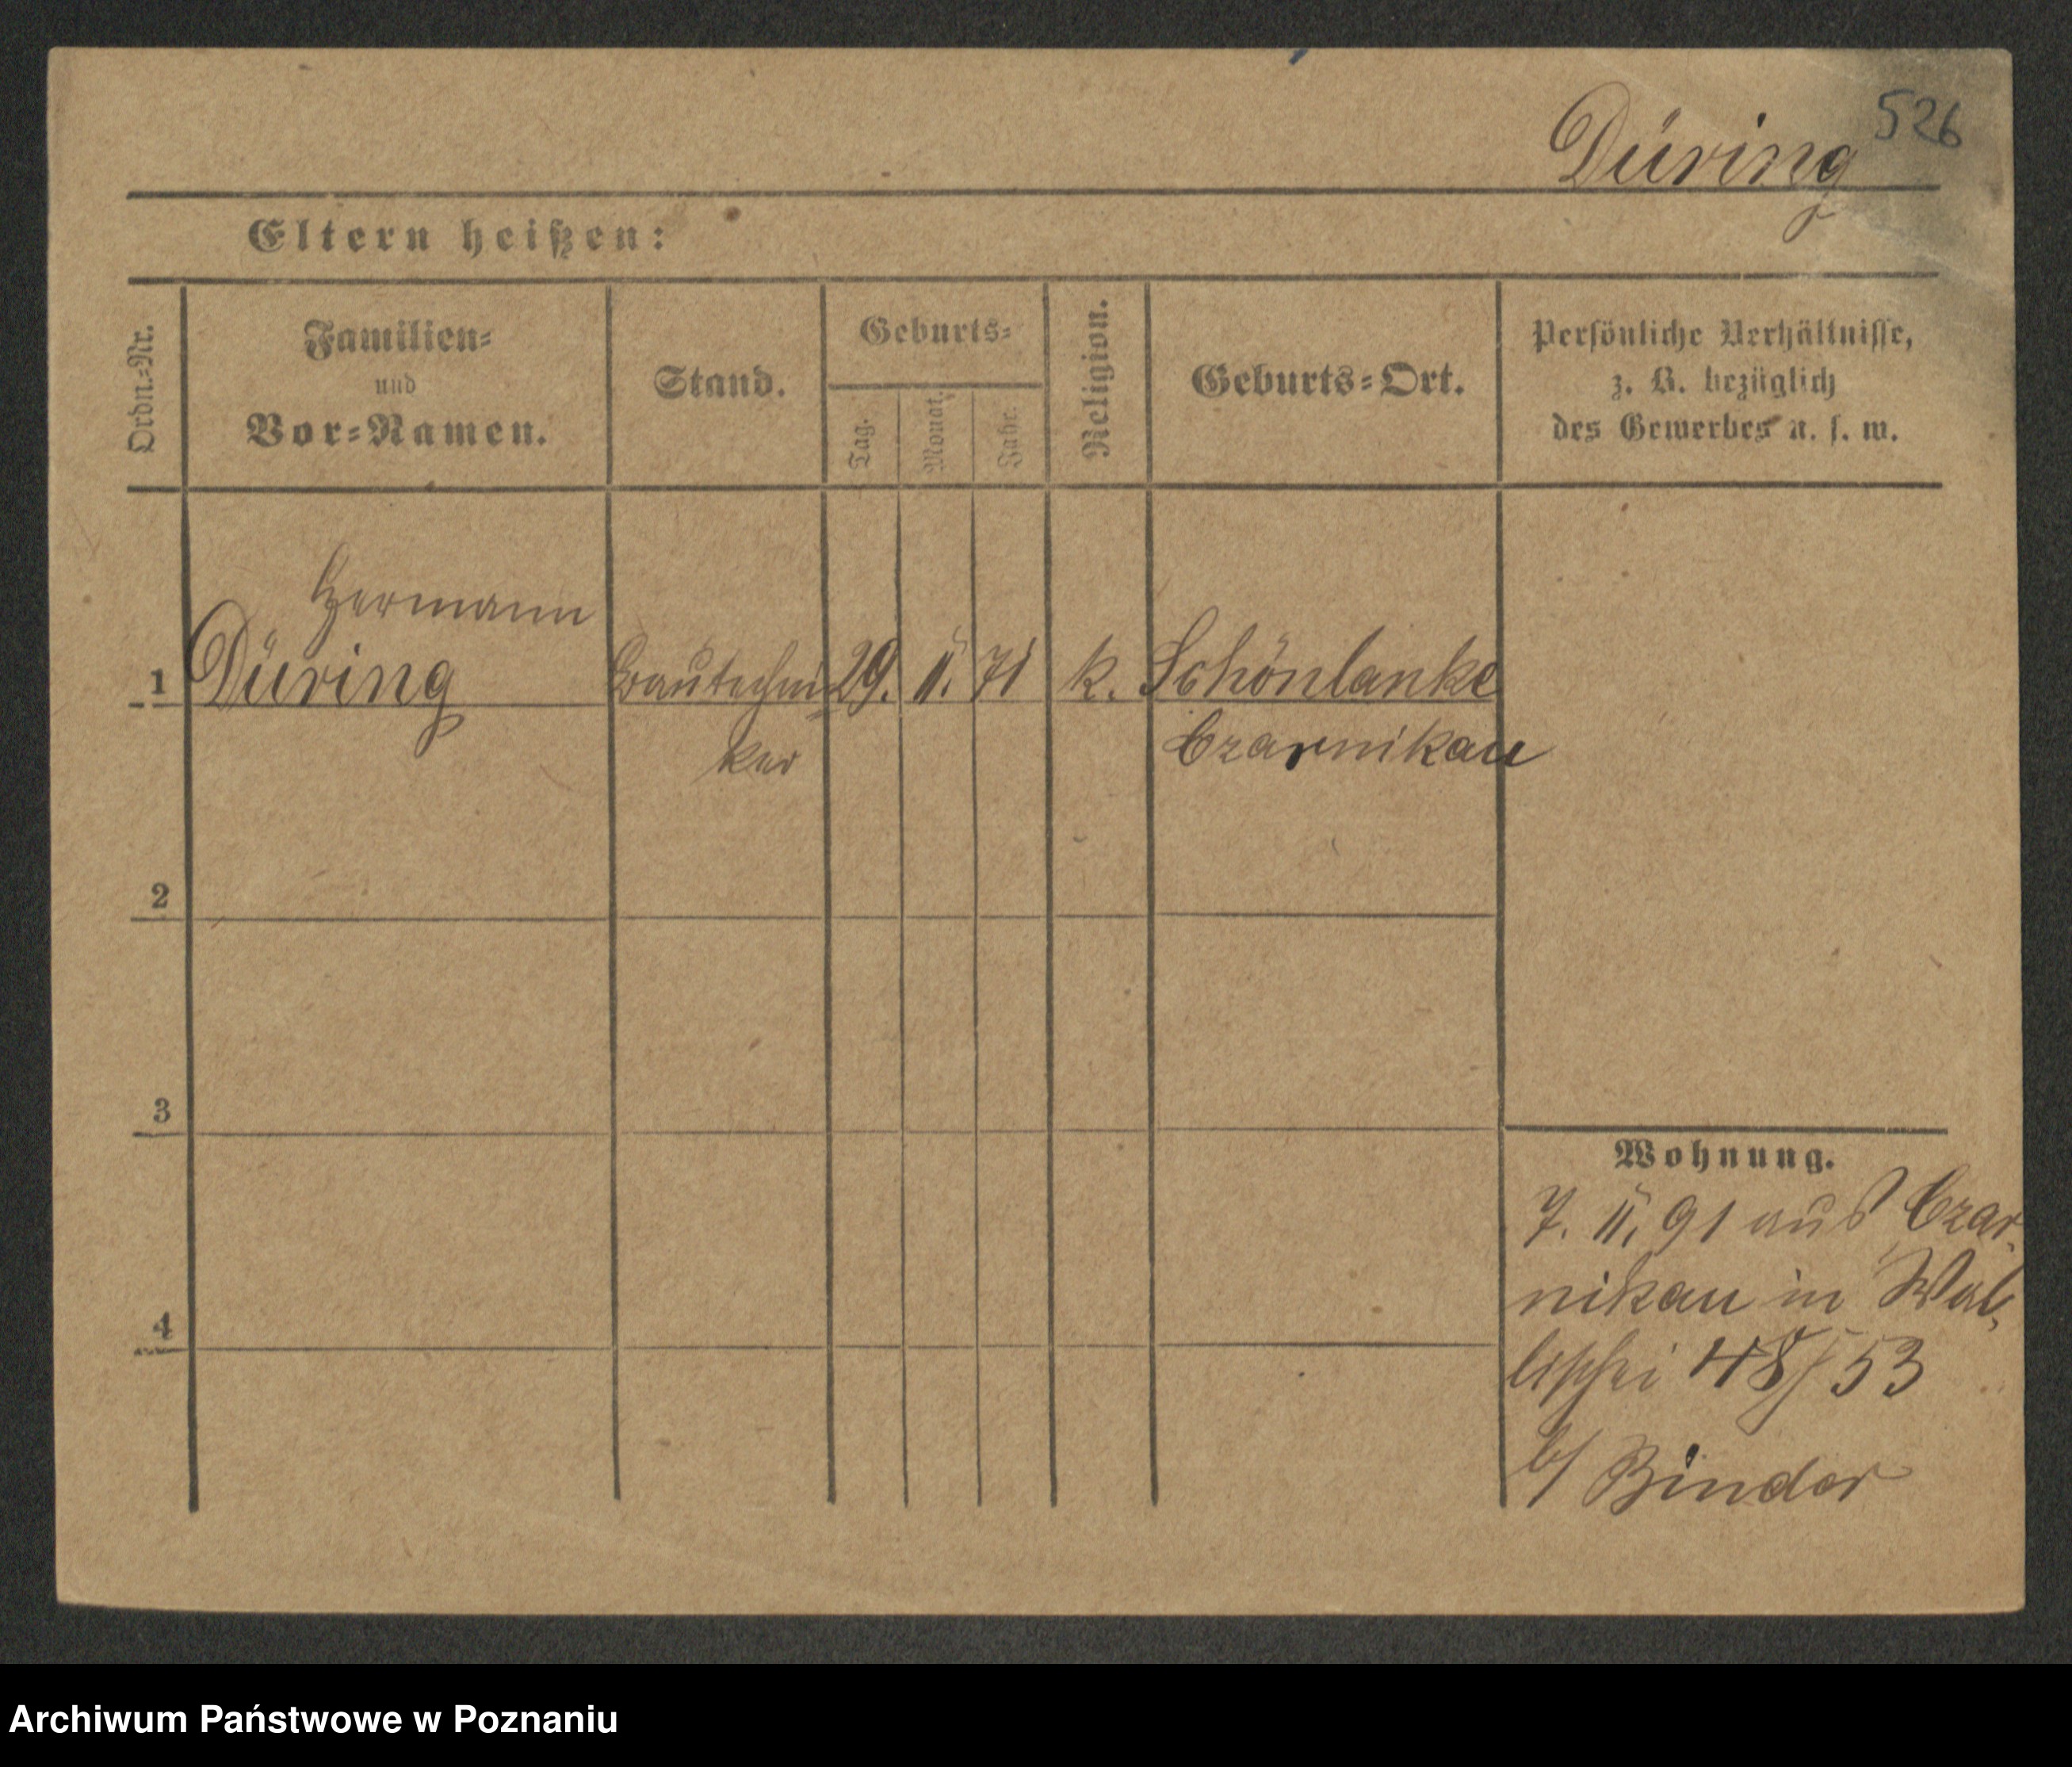 526
Düring
Eltern heißen:
Ordn.-Nr.
Familien-
und
Vor-Namen.
Stand.
Geburts-
Tag.
Monat.
Jahr.
Religion.
Geburts-Ort.
Persönliche Verhältnisse,
z. B. bezüglich
des Gewerbes u. s. w.
Hermann
1 Düring Bautechni 29. II. 71 k. Schönlanke
ker Czarnikau
2
3
4
Wohnung.
7. II. 91 aus Czar-
nikau in Wal-
lischei 48/53
b/ Binder
Archiwum Państwowe w Poznaniu